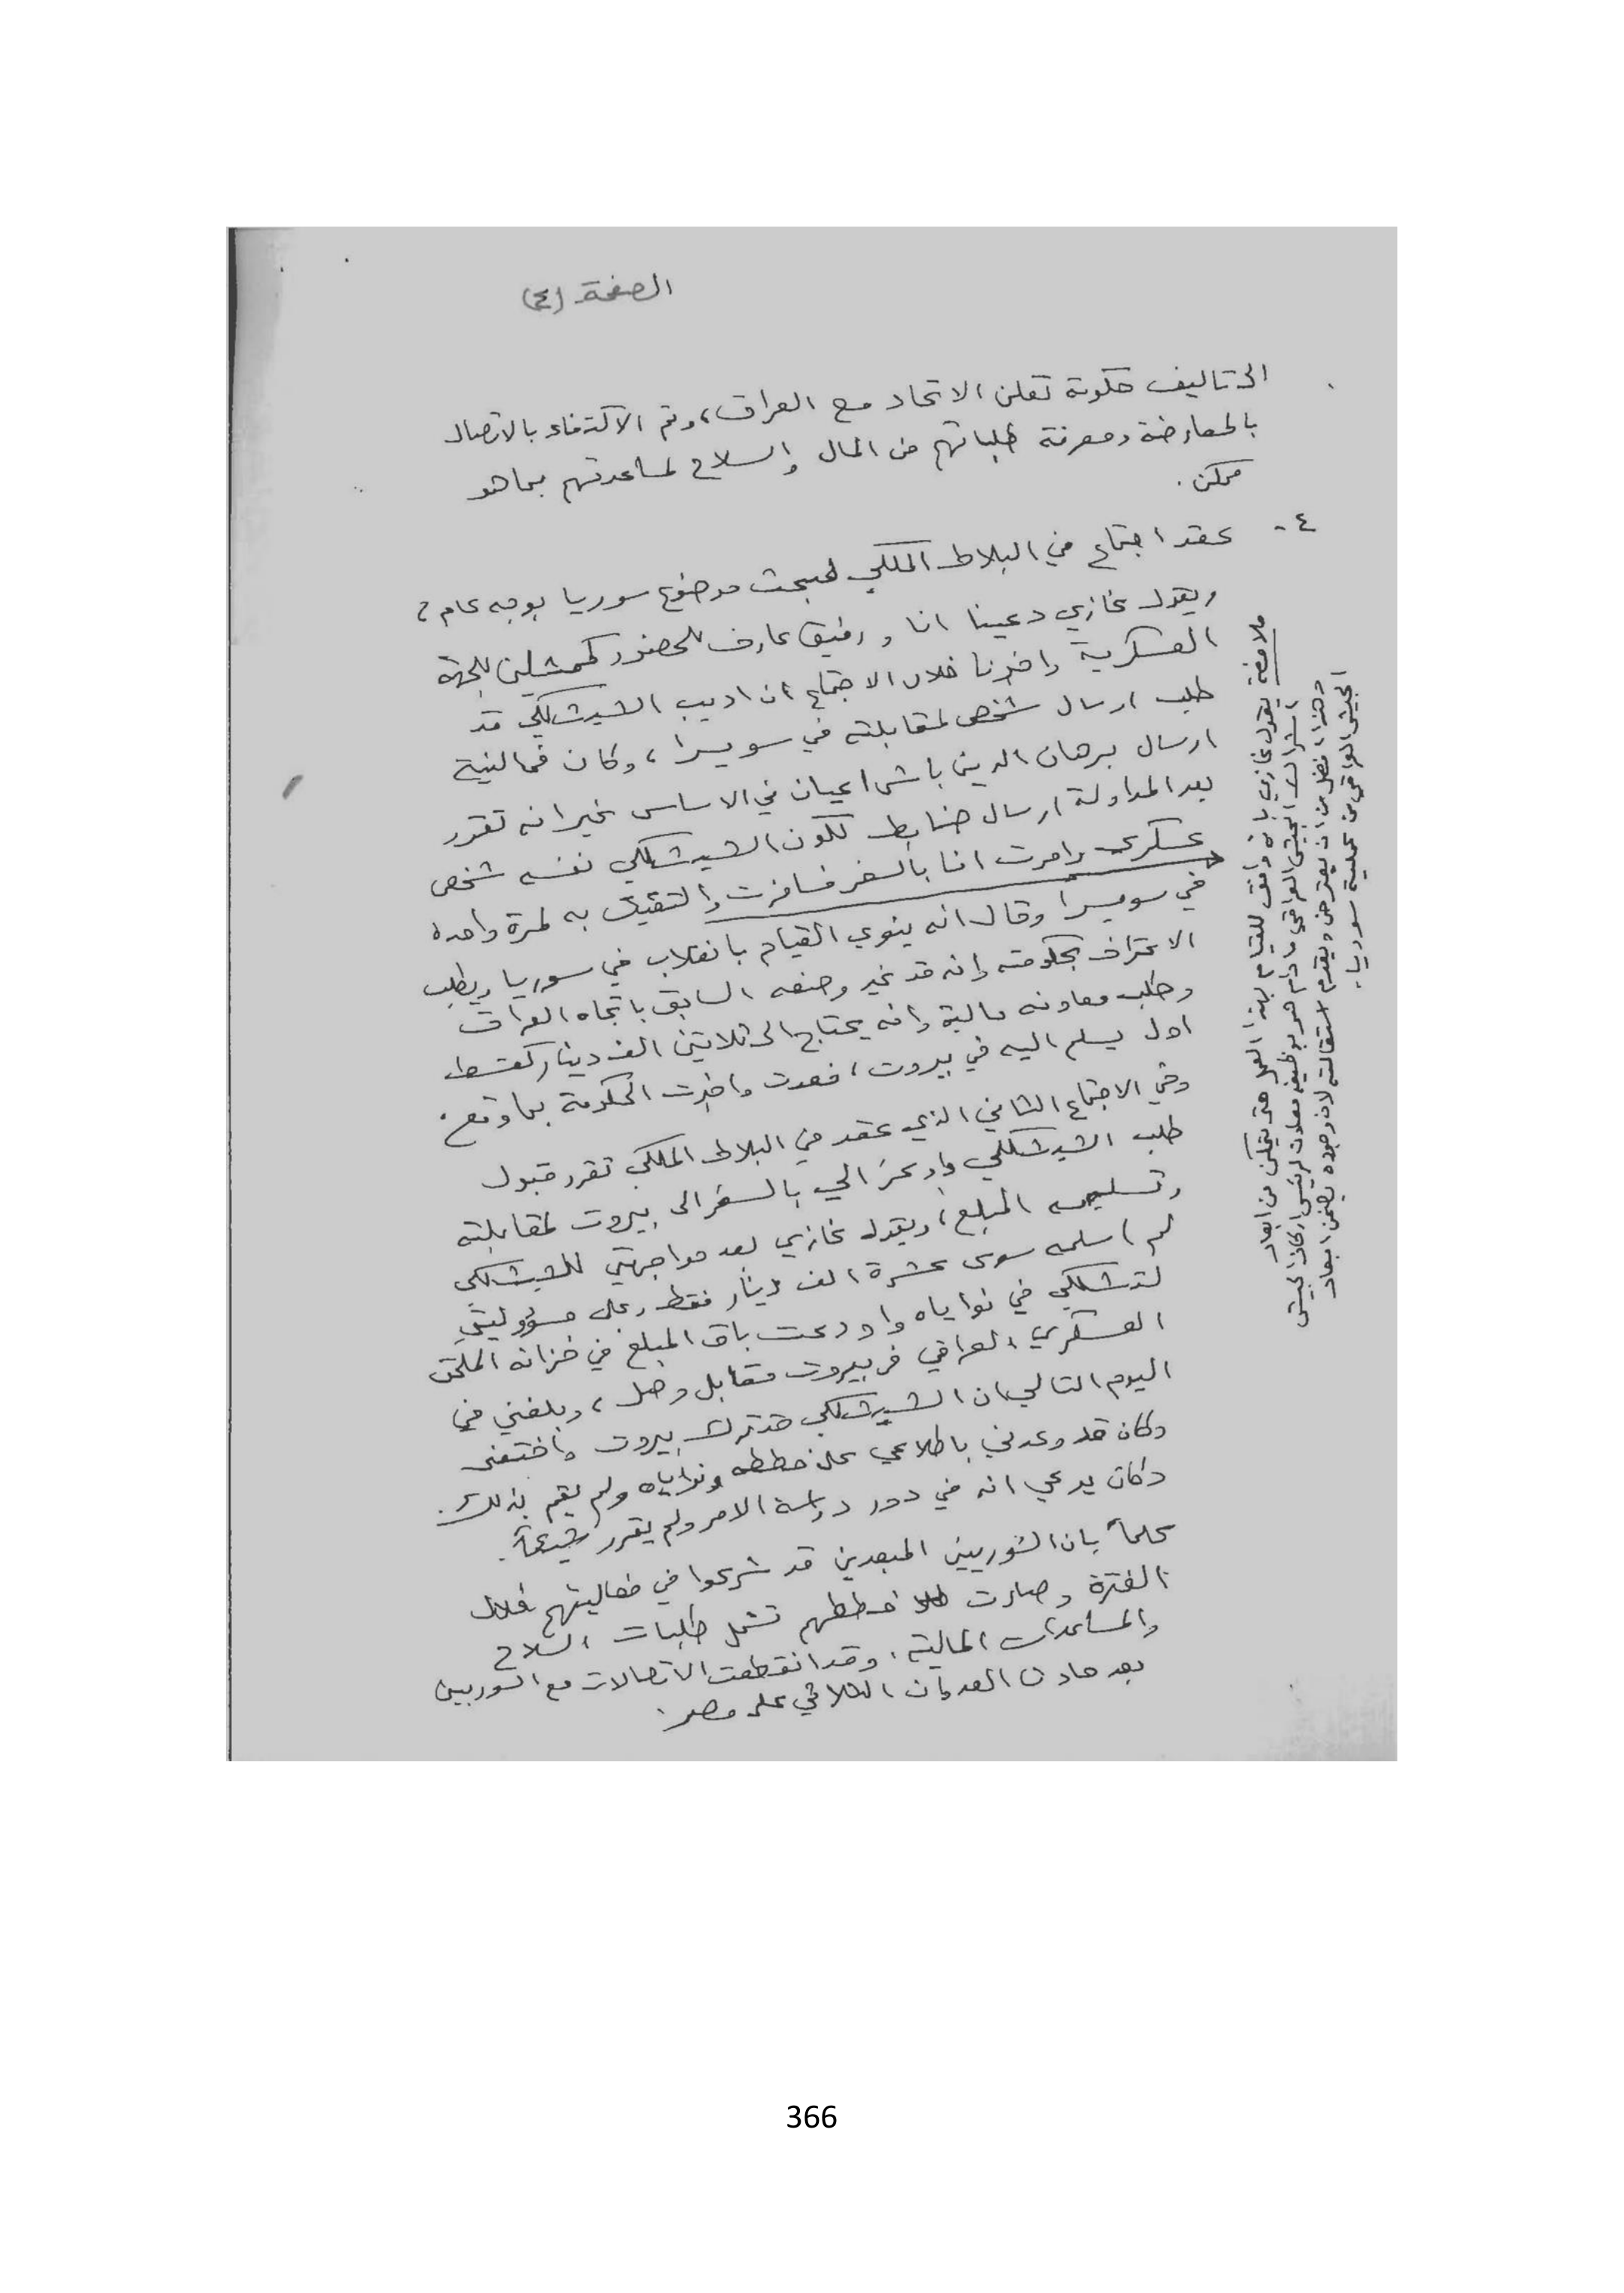 الصفحة (٤)
الى تاليف حكومة تعلن الاتحاد مع العراق، وتم الاكتفاء بالاتصال
بالمعارضة ومعرفة طلباتهم من المال والسلاح لمساعدتهم بما هو
ممكن .
٤ - عقد اجتماع في البلاط الملكي لبحث موضوع سوريا بوجه عام ،
ويقول غازي دعينا انا ورفيق عارف للحضور كممثلين للجهة
العسكرية واخبرنا خلال الاجتماع ان اديب الشيشكلي قد
طلب ارسال شخص لمقابلته في سويسرا ، وكان في النية
ارسال برهان الدين باش اعيان في الاساس غير انه تقرر
بعد المداولة ارسال ضابط لكون الشيشكلي نفسه شخص
عسكري وامرت انا بالسفر فسافرت والتقيت به لمرة واحدة
في سويسرا وقال انه ينوي القيام بانقلاب في سوريا ويطلب
الاعتراف بحكومته وانه قد غير وضعه السابق باتجاه العراق
وطلب معاونه مالية وانه يحتاج الى ثلاثين الف دينار كقسط
اول يسلم اليه في بيروت ، فعدت واخبرت الحكومة بما وقع .
وفي الاجتماع الثاني الذي عقد في البلاط الملكي تقرر قبول
طلب الشيشكلي واوعز الي بالسفر الى بيروت لمقابلته
وتسليمه المبلغ ، ويقول غازي بعد مواجهتي للشيشكلي
لم اسلمه سوى عشرة الف دينار فقط وعلى مسؤوليتي
لتشككي في نواياه واودعت باقي المبلغ في خزانة الملحق
العسكري العراقي في بيروت مقابل وصل ، وبلغني في
اليوم التالي ان الشيشكلي قد ترك بيروت واختفى
وكان قد وعدني باطلاعي على خططه ونواياه ولم يقم بذلك .
وكان يدعي انه في دور دراسة الامر ولم يقرر شيئاً .
علماً بان السوريين المبعدين قد شرعوا في فعاليتهم خلال
الفترة وصارت خططهم تشمل طلبات السلاح
والمساعدات المالية . وقد انقطعت الاتصالات مع السوريين
بعد حادث العدوان الثلاثي على مصر .
ملاحظة يقول غازي بانه وافق للقيام بهذا العمل حتى يتمكن من ابعاد
اشتراك الجيش العراقي ما دام هو بوظيفة معاون لرئيس اركان الجيش
وهذا افضل من ان يعترض ويقدم استقالته لان وجوده يضمن ابعاد
الجيش العراقي من عملية سوريا .
366